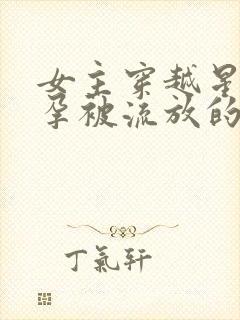 女主穿越星
孕被流放的
丁氣轩